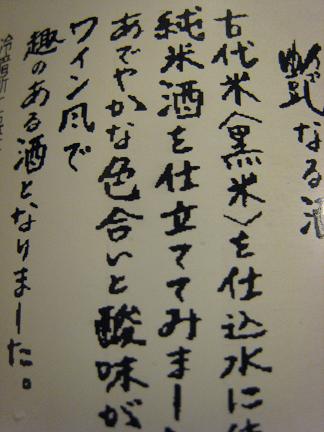 艶なる酒
古代米〈黒米〉を仕込水に
純米酒を仕立ててみまし
あでやかな色合いと酸味が
ワイン風で
趣のある酒となりました。